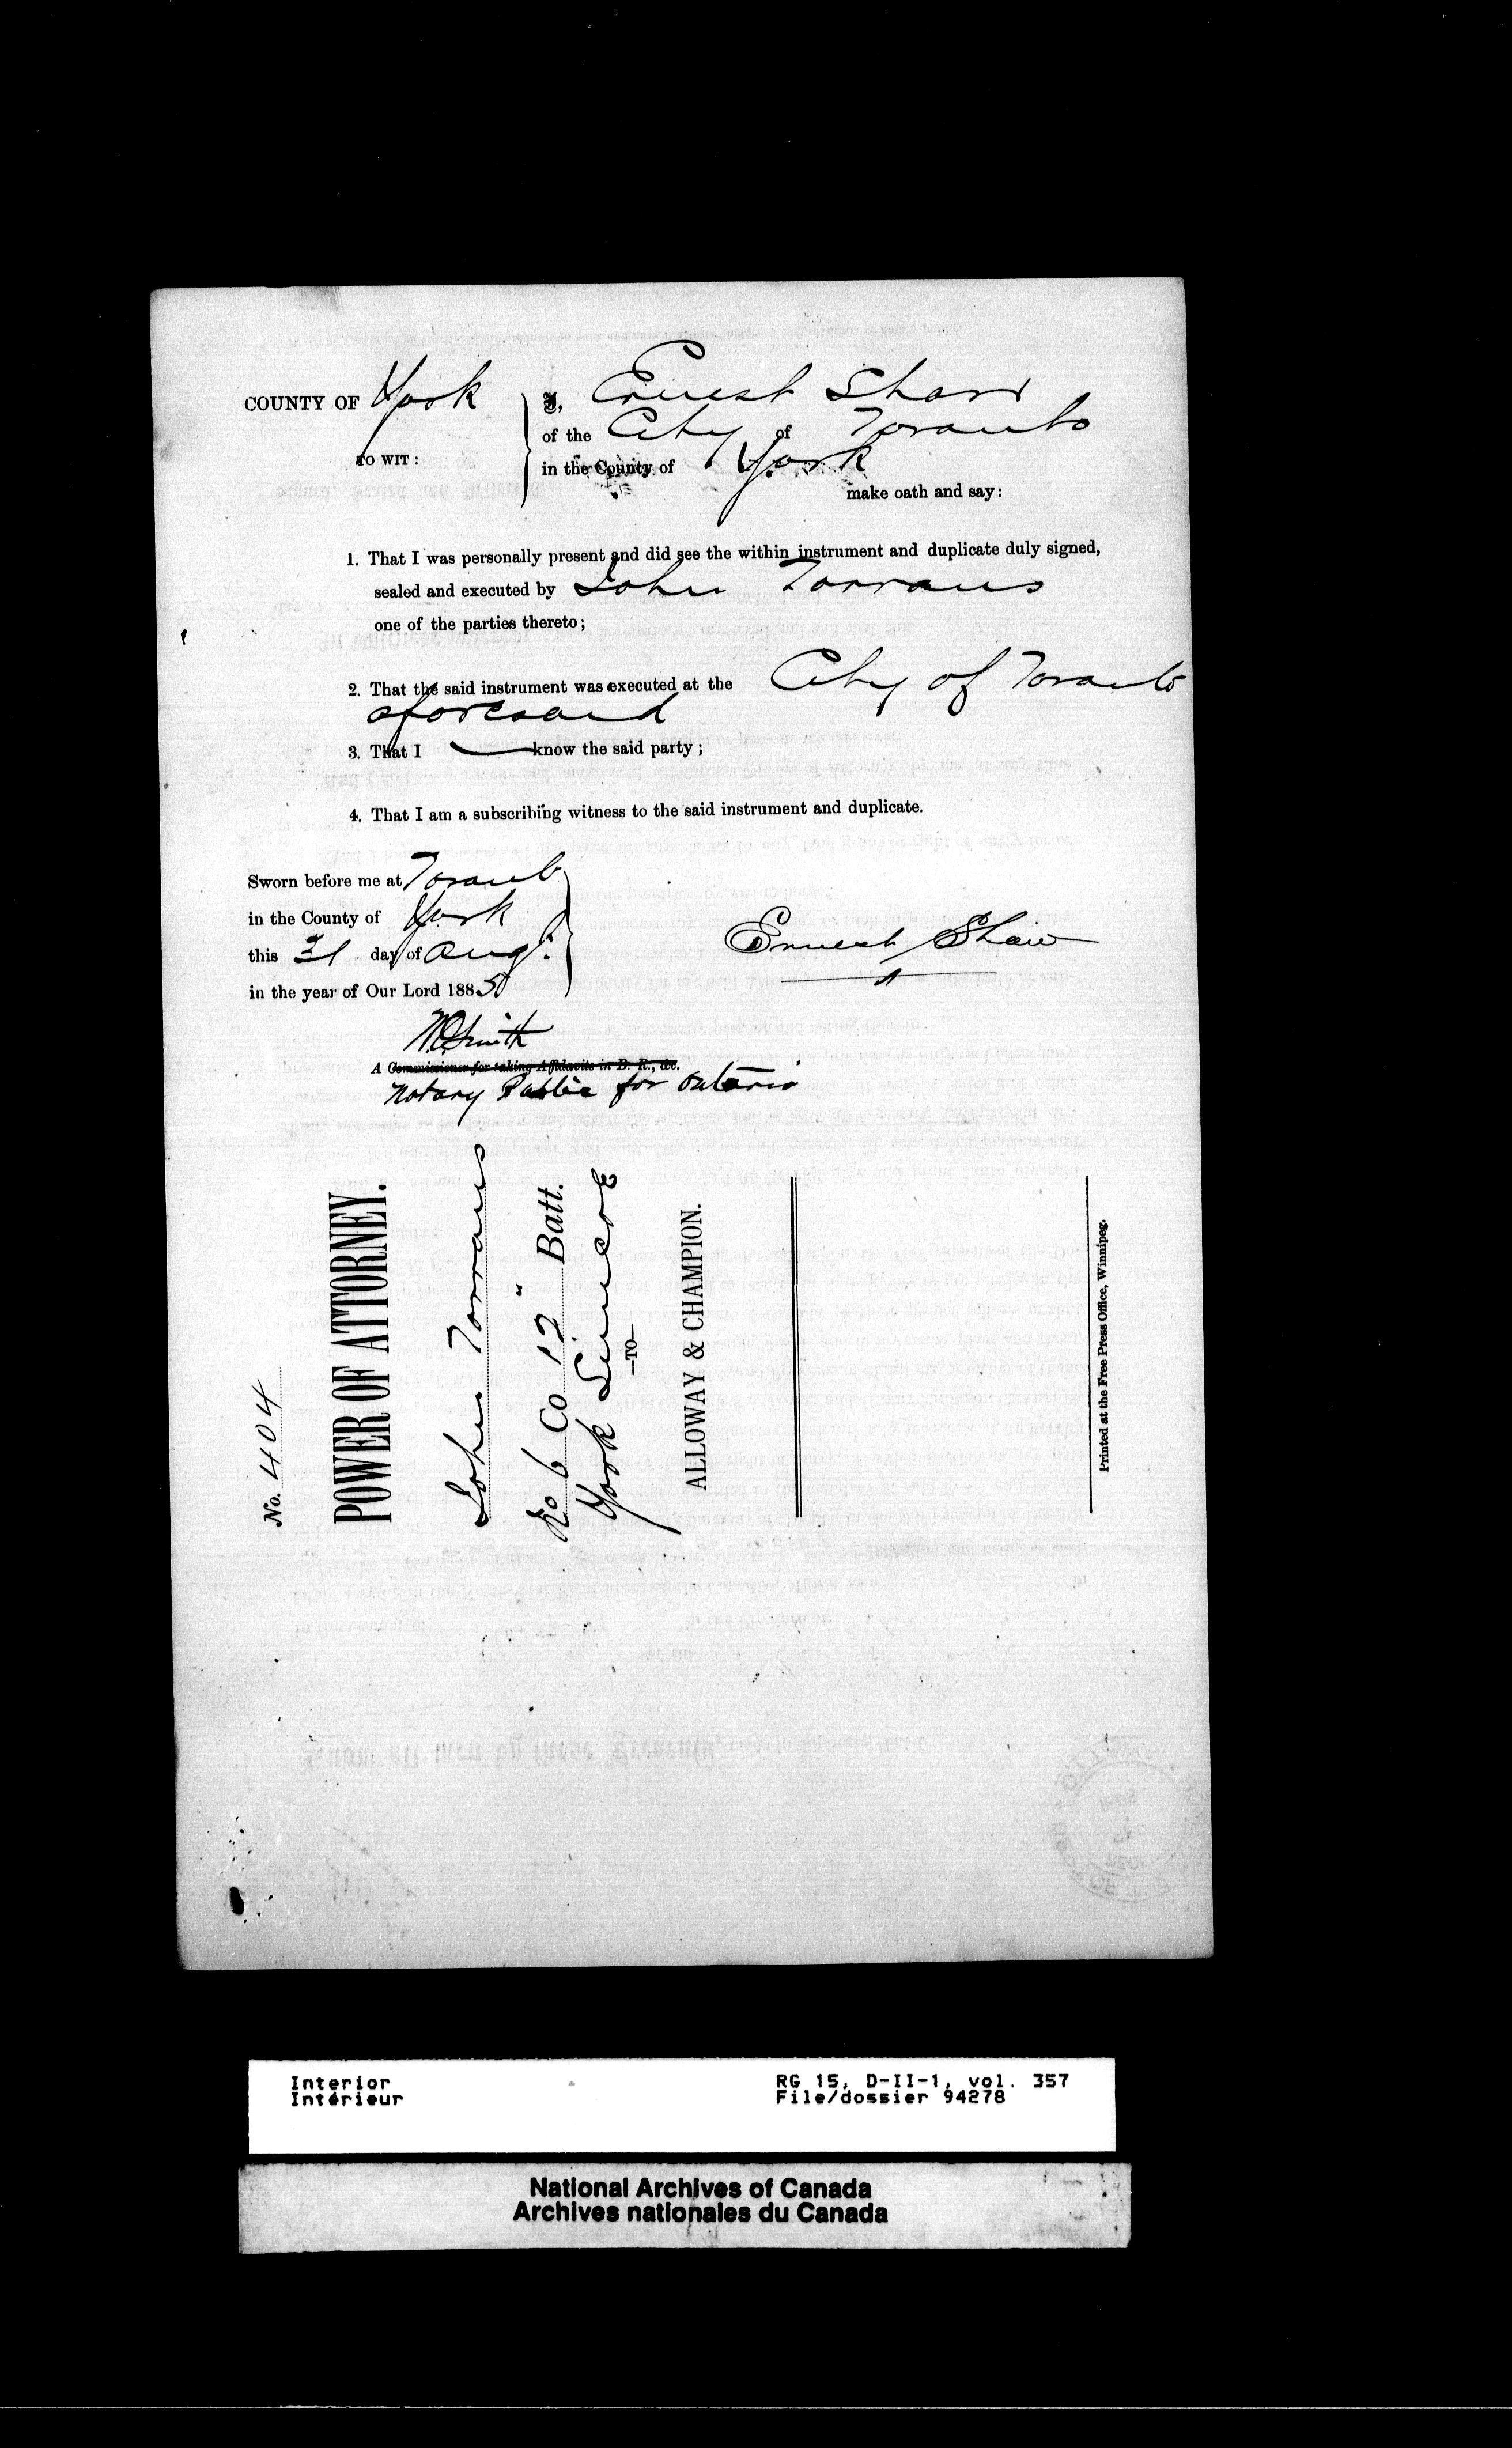 COUNTY OF York
TO WIT:
I, Ernest Shaw
of the City of Toronto
in the County of York
make oath and say:
1. That I was personally present and did see the within instrument and duplicate duly signed,
sealed and executed by John Torrans
one of the parties thereto;
2. That the said instrument was executed at the City of Toronto
aforesaid
3. That I know the said party;
4. That I am a subscribing witness to the said instrument and duplicate.
Sworn before me at Toronto
in the County of York
this 31 day of Augt.
in the year of Our Lord 1885
Ernest Shaw
Smith
A Commissioner for taking Affidavits in B. R., &c.
Notary Public for Ontario
No. 404
POWER OF ATTORNEY.
John Torrans
No 6 Co 12" Batt.
York Simcoe
—TO—
ALLOWAY & CHAMPION.
Printed at the Free Press Office, Winnipeg.
Interior
Intérieur
RG 15, D-II-1, vol. 357
File/dossier 94278
National Archives of Canada
Archives nationales du Canada